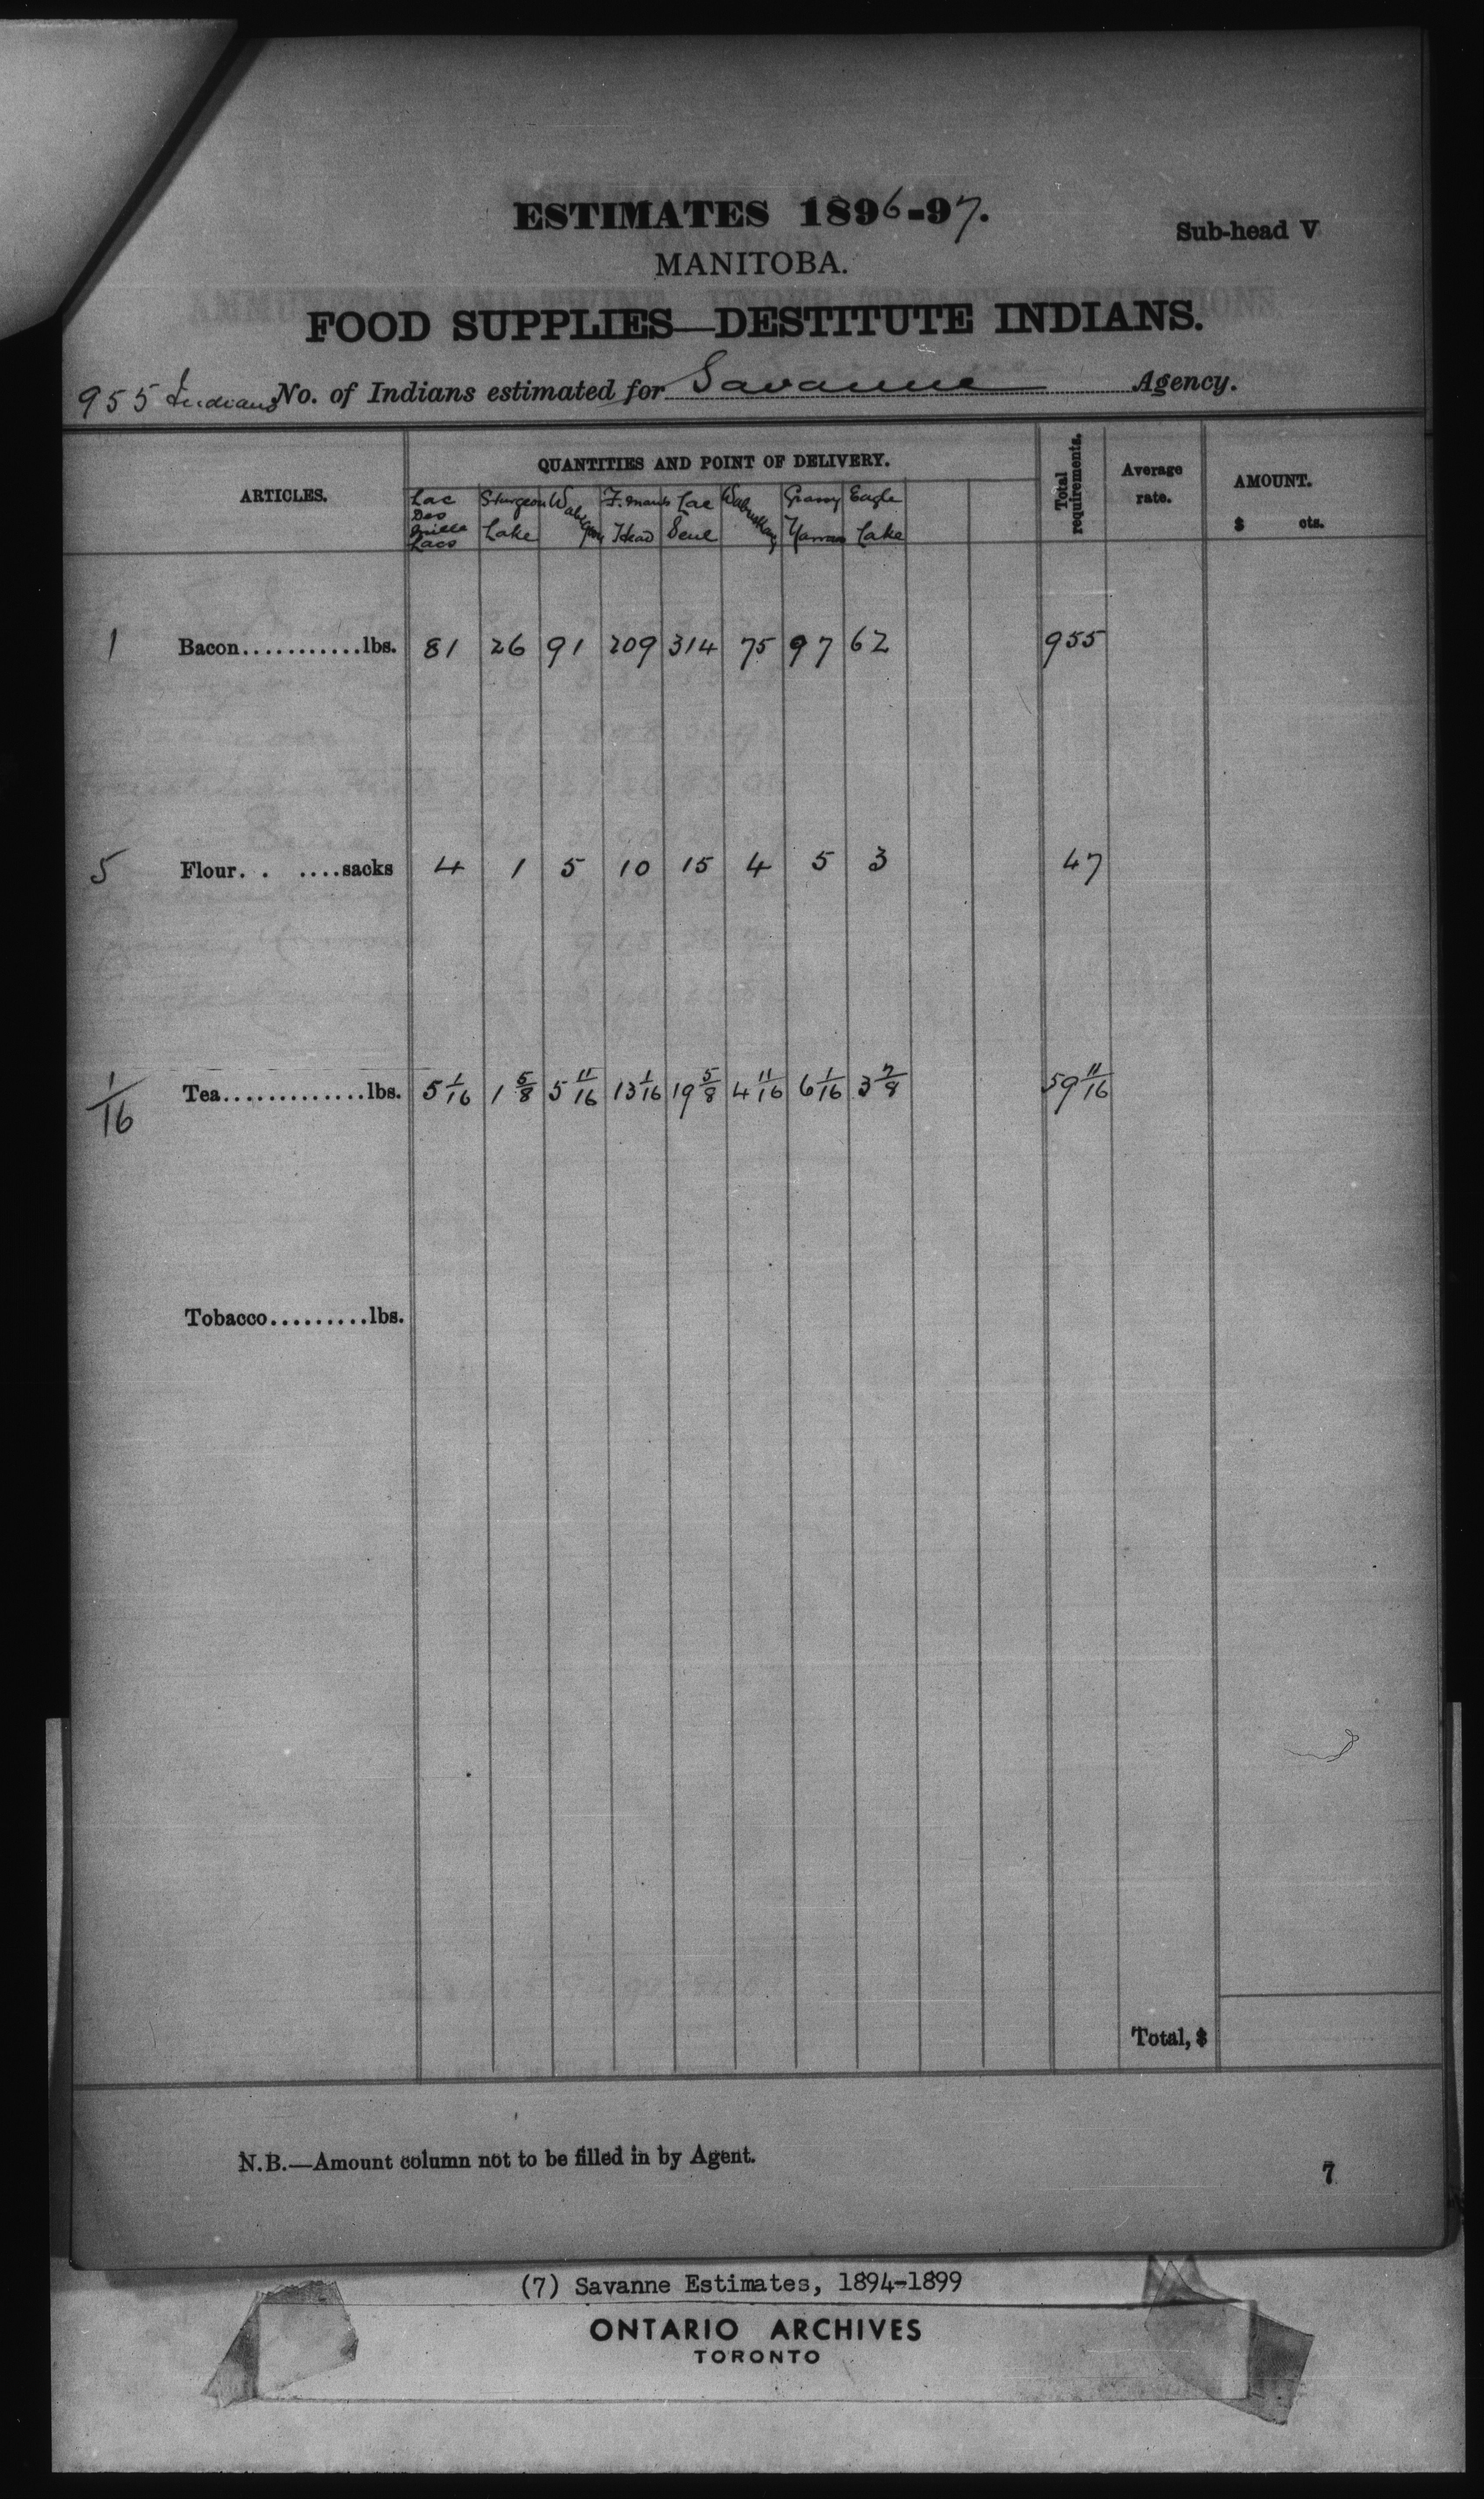 ESTIMATES 1896-97.
Sub-head V
MANITOBA.
FOOD SUPPLIES—DESTITUTE INDIANS.
955 Indians No. of Indians estimated for Savanne Agency.
ARTICLES.
QUANTITIES AND POINT OF DELIVERY.
Total requirements.
Average rate.
AMOUNT.
$ cts.
Lac Des Mille Lacs
Sturgeon Lake
Wabigoon
F. mans Head
Lac Seul
Wabuskang
Grassy Narrows
Eagle Lake
1 Bacon...........lbs. 81 26 91 209 314 75 97 62 955
5 Flour. . ....sacks 4 1 5 10 15 4 5 3 47
1/16 Tea.............lbs. 5 1/16 1 5/8 5 11/16 13 1/16 19 5/8 4 11/16 6 1/16 3 7/8 59 11/16
Tobacco.........lbs.
Total, $
N.B.—Amount column not to be filled in by Agent.
7
(7) Savanne Estimates, 1894-1899
ONTARIO ARCHIVES
TORONTO